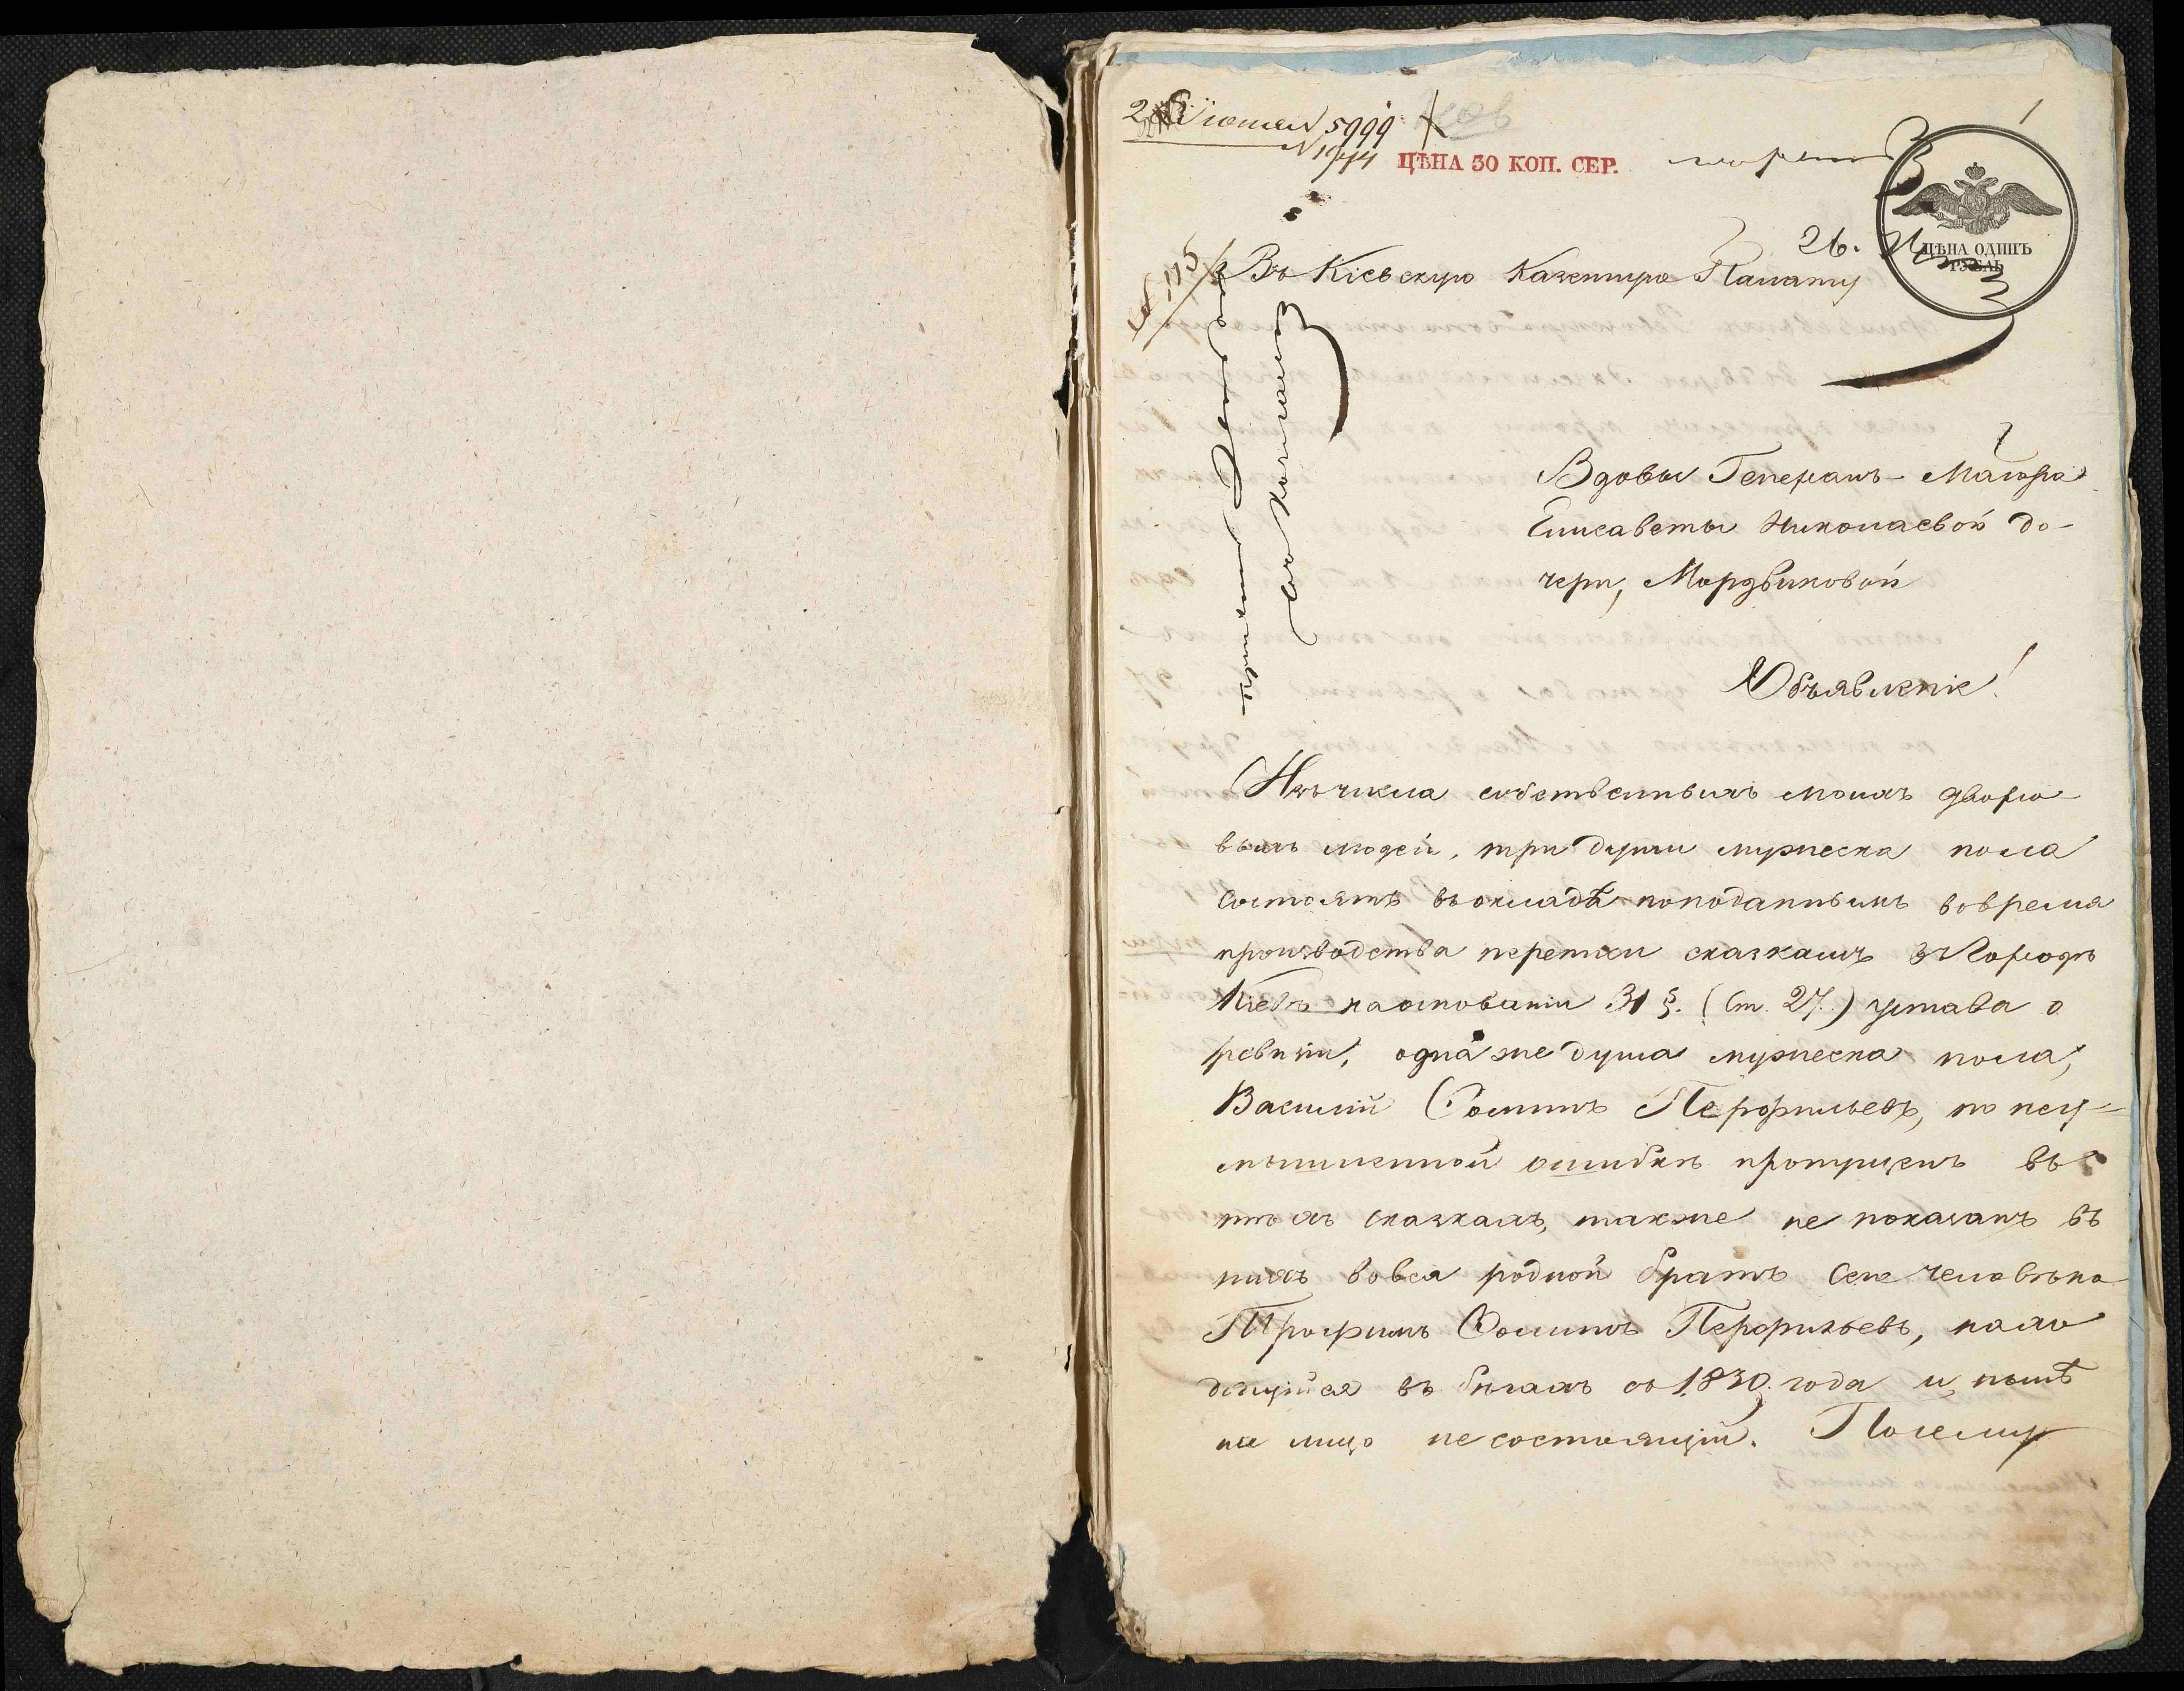 5999
ЦѢНА 30 КОП. СЕР.
1
ЦѢНА ОДИНЪ
РУБЛЬ
26.
Въ Кіевскую Казенную Палату
Вдовы Генералъ-Маіора
Елисаветы Николаевой до-
чери, Мордвиновой
Объявленіе!
Изъ числа собственныхъ моихъ дворо-
выхъ людей, три души мужеска пола
состоятъ въ окладѣ поподаннымъ вовремя
производства переписи сказкамъ въ Городѣ
Кіевѣ на основаніи 31 §. (ст. 27.) устава о
ревизіи, одна же душа мужеска пола,
Василій Фоминъ Перфильевъ, по неу-
мышленной ошибкѣ пропущенъ въ
тѣхъ сказкахъ, также не показанъ въ
нихъ вовся родной братъ сего человѣка
Трофимъ Фоминъ Перфильевъ, нахо
дящійся въ бѣгахъ съ 1830. года и нынѣ
на лицо не состоящій. Почему